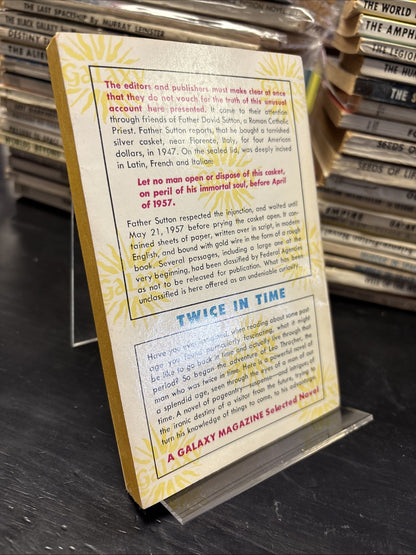 THE LAST SPACESHIP By MURRAY LEINSTER
THE BLACK GALAXY
DESTINY
THE ALIEN
The editors and publishers must make clear at once
that they do not vouch for the truth of this unusual
account here presented. It came to their attention
through friends of Father David Sutton, a Roman Catholic
Priest. Father Sutton reports, that he bought a tarnished
silver casket, near Florence, Italy, for four American
dollars, in 1947. On the sealed lid, was deeply incised
in Latin, French and Italian:
Let no man open or dispose of this casket,
on peril of his immortal soul, before April
of 1957.
Father Sutton respected the injunction, and waited until
May 21, 1957 before prying the casket open. It con-
tained sheets of paper, written over in script, in modern
English, and bound with gold wire in the form of a rough
book. Several passages, including a large one at the
very beginning, had been classified by Federal Agencies
as not to be released for publication. What has been
unclassified is here offered as an undeniable curiosity...
TWICE IN TIME
Have you ever imagined, when reading about some past
age you found particularly fascinating, what it might
be like to go back in time and actually live through that
period? So began the adventure of Leo Thrasher, the
man who was twice in time. Here is a powerful novel of
a splendid age, seen through the eyes of a man of our
time. A novel of pageantry—suspense—and intrigue, of
the ironic destiny of a visitor from the future, trying to
turn his knowledge of things to come, to his advantage.
A GALAXY MAGAZINE Selected Novel
THE WORLD
THE AMPHIB
THE LEGION
THE
SEEDS OF
SEEDS OF LIFE
EMPIRE